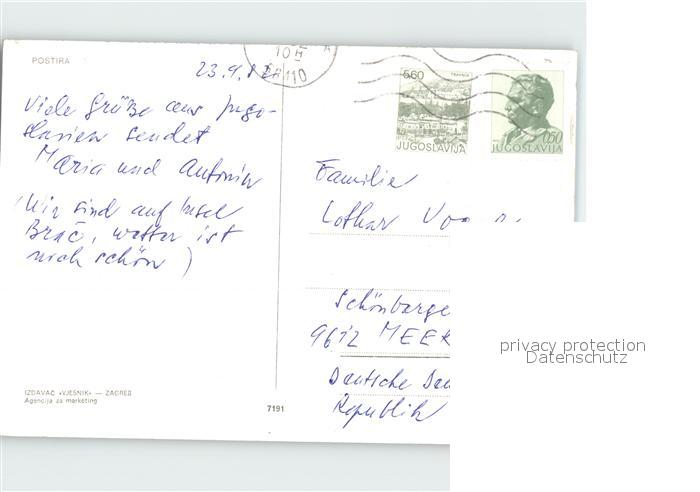 POSTIRA
23.9.82
10 H
110
A
5,60
TRAVNIK
JUGOSLAVIJA
0,50
JUGOSLAVIJA
Viele Grüße aus Jugo-
slawien sendet
Maria und Antonin
(Wir sind auf Insel
Brač, wetter ist
noch schön)
Familie
Lothar
Schönberge
9612 MEER
Deutsche De
Republik
IZDAVAČ «VJESNIK» — ZAGREB
Agencija za marketing
7191
privacy protection
Datenschutz